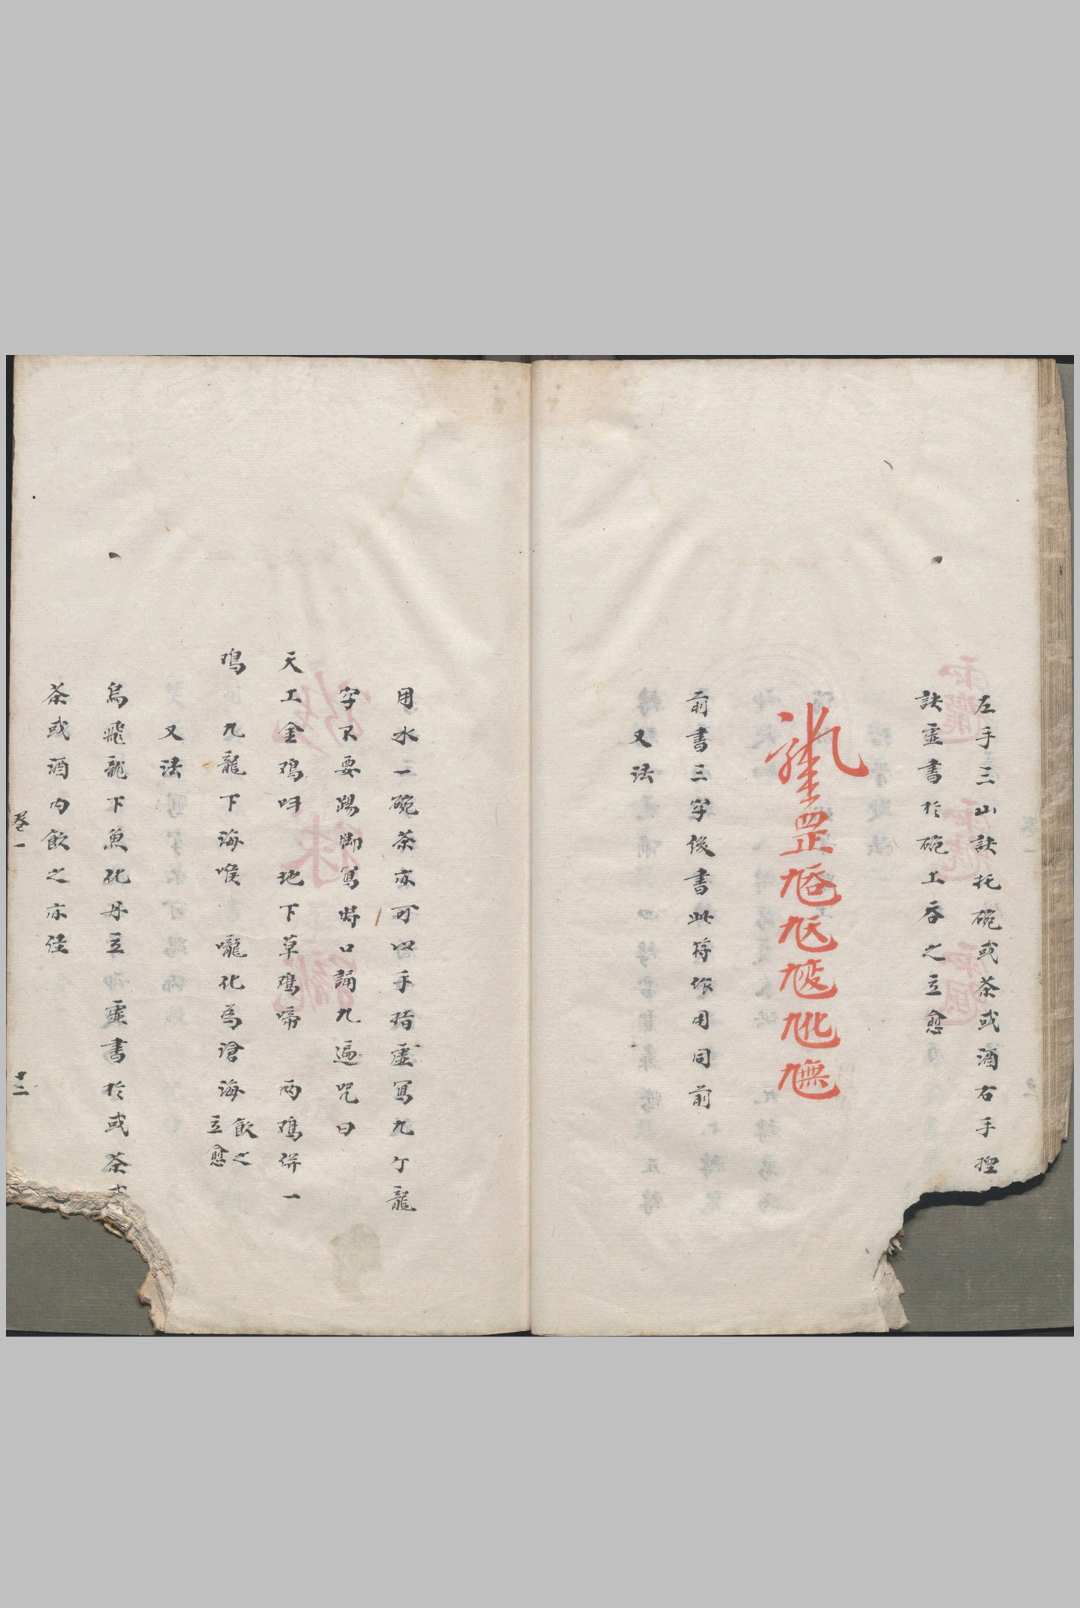 左手三山訣托碗或茶或酒右手
訣虛書於碗上吞之立愈
罡
前書三字後書此符作用同前
又法
用水一碗茶亦可留手指虛寫九个龍
字不要踢脚寫時口誦九遍咒曰
天上金鳮叫 地下草鳮啼 両鳮併一
鳮 九龍下海喉 嚨化為滄海飲之立愈
又法
烏飛龍下魚化丹丘 虛書於或茶
茶或酒内飲之亦佳
卷一
十二